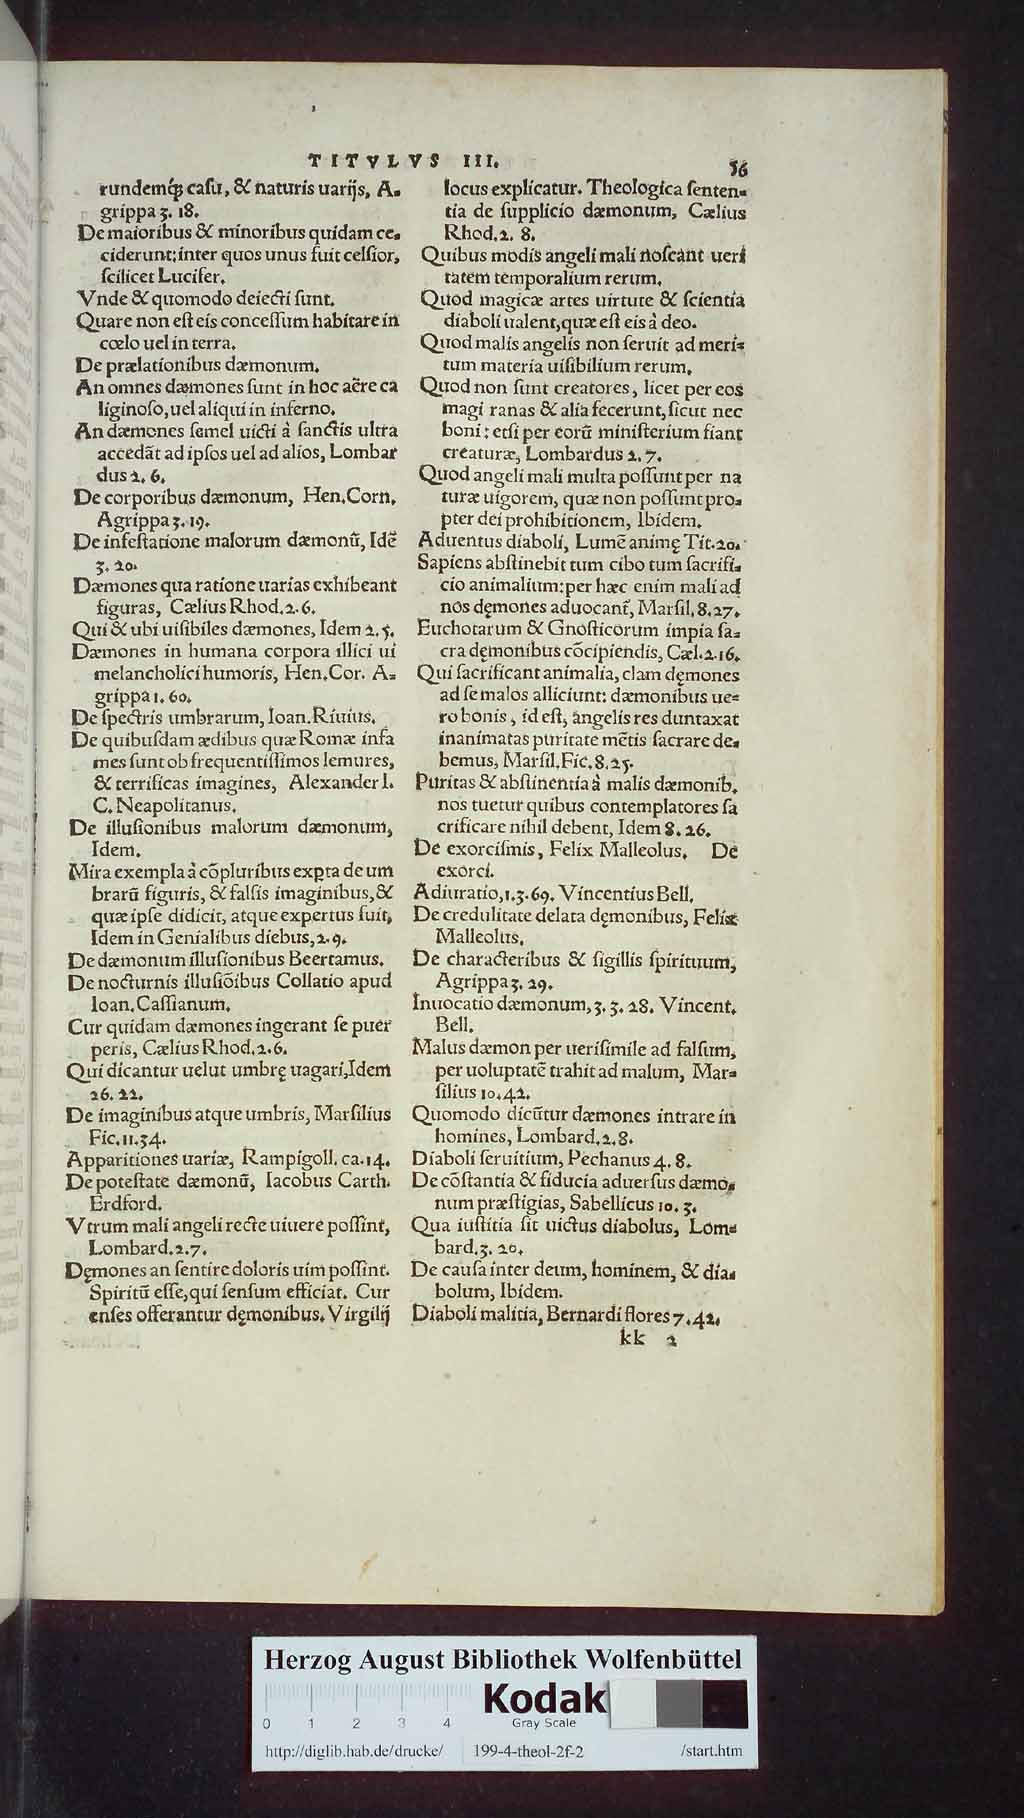 TITVLVS III.
56
rundemq́; casu, & naturis uarijs, A-
grippa 3. 18.
De maioribus & minoribus quidam ce-
ciderunt: inter quos unus fuit celsior,
scilicet Lucifer.
Vnde & quomodo deiecti sunt.
Quare non est eis concessum habitare in
cœlo uel in terra.
De prælationibus dæmonum.
An omnes dæmones sunt in hoc aëre ca
liginoso, uel aliqui in inferno.
An dæmones semel uicti à sanctis ultra
accedãt ad ipsos uel ad alios, Lombar
dus 2. 6.
De corporibus dæmonum, Hen. Corn.
Agrippa 3. 19.
De infestatione malorum dæmonũ, Idẽ
3. 20.
Dæmones qua ratione uarias exhibeant
figuras, Cælius Rhod. 2. 6.
Qui & ubi uisibiles dæmones, Idem 2. 5.
Dæmones in humana corpora illici ui
melancholici humoris, Hen. Cor. A-
grippa 1. 60.
De spectris umbrarum, Ioan. Riuius.
De quibusdam ædibus quæ Romæ infa
mes sunt ob frequentissimos lemures,
& terrificas imagines, Alexander I.
C. Neapolitanus.
De illusionibus malorum dæmonum,
Idem.
Mira exempla à cõpluribus expta de um
brarũ figuris, & falsis imaginibus, &
quæ ipse didicit, atque expertus fuit,
Idem in Genialibus diebus, 2. 9.
De dæmonum illusionibus Beertamus.
De nocturnis illusiõibus Collatio apud
Ioan. Cassianum.
Cur quidam dæmones ingerant se puer
peris, Cælius Rhod. 2. 6.
Qui dicantur uelut umbrę uagari, Idem
26. 22.
De imaginibus atque umbris, Marsilius
Fic. 11. 34.
Apparitiones uariæ, Rampigoll. ca. 14.
De potestate dæmonũ, Iacobus Carth.
Erdford.
Vtrum mali angeli recte uiuere possint,
Lombard. 2. 7.
Dęmones an sentire doloris uim possint.
Spiritũ esse, qui sensum efficiat. Cur
enses offerantur dęmonibus. Virgilij
locus explicatur. Theologica senten-
tia de supplicio dæmonum, Cælius
Rhod. 2. 8.
Quibus modis angeli mali noscant ueri
tatem temporalium rerum.
Quod magicæ artes uirtute & scientia
diaboli ualent, quæ est eis à deo.
Quod malis angelis non seruit ad meri-
tum materia uisibilium rerum.
Quod non sunt creatores, licet per eos
magi ranas & alia fecerunt, sicut nec
boni: etsi per eorũ ministerium fiant
creaturæ, Lombardus 2. 7.
Quod angeli mali multa possunt per na
turæ uigorem, quæ non possunt pro-
pter dei prohibitionem, Ibidem.
Aduentus diaboli, Lumẽ animę Tit. 20.
Sapiens abstinebit tum cibo tum sacrifi-
cio animalium: per hæc enim mali ad
nos dęmones aduocant̃, Marsil. 8. 27.
Euchotarum & Gnosticorum impia sa-
cra dęmonibus cõcipiendis, Cæl. 2. 16.
Qui sacrificant animalia, clam dęmones
ad se malos alliciunt: dæmonibus ue-
ro bonis, id est, angelis res duntaxat
inanimatas puritate mẽtis sacrare de-
bemus, Marsil. Fic. 8. 25.
Puritas & abstinentia à malis dæmonib.
nos tuetur quibus contemplatores sa
crificare nihil debent, Idem 8. 26.
De exorcismis, Felix Malleolus. De
exorci.
Adiuratio, 1. 3. 69. Vincentius Bell.
De credulitate delata dęmonibus, Felix
Malleolus.
De characteribus & sigillis spirituum,
Agrippa 3. 29.
Inuocatio dæmonum, 3. 3. 28. Vincent.
Bell.
Malus dæmon per uerisimile ad falsum,
per uoluptatẽ trahit ad malum, Mar-
silius 10. 42.
Quomodo dicũtur dæmones intrare in
homines, Lombard. 2. 8.
Diaboli seruitium, Pechanus 4. 8.
De cõstantia & fiducia aduersus dæmo-
num præstigias, Sabellicus 10. 3.
Qua iustitia sit uictus diabolus, Lom-
bard. 3. 20.
De causa inter deum, hominem, & dia-
bolum, Ibidem.
Diaboli malitia, Bernardi flores 7. 42.
kk 2
Herzog August Bibliothek Wolfenbüttel
0 1 2 3 4
Kodak
Gray Scale
http://diglib.hab.de/drucke/ 199-4-theol-2f-2 /start.htm